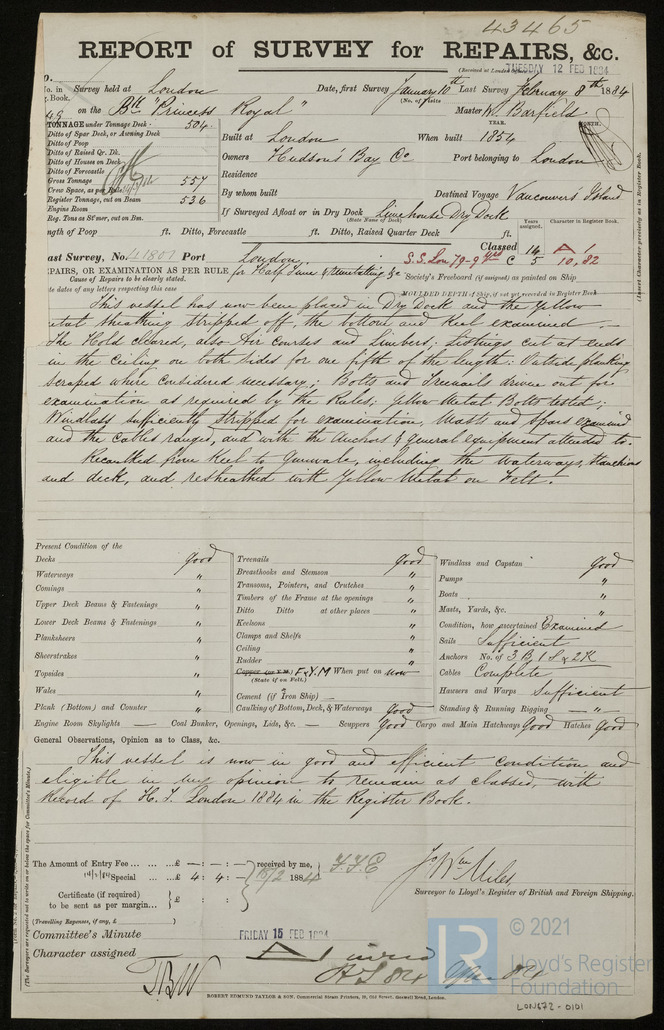 43465
REPORT of SURVEY for REPAIRS, &c.
(Received at London Office)
TUESDAY 12 FEB 1884
No. in Survey held at London Date, first Survey January 10th Last Survey February 8th 1884
Book. (No. of Visits
on the Bk "Princess Royal" Master W. Barfield
TONNAGE under Tonnage Deck 504
Ditto of Spar Deck, or Awning Deck
Ditto of Poop
Ditto of Raised Qr. Dk.
Ditto of Houses on Deck
Ditto of Forecastle
Gross Tonnage 557
Crew Space, as per Rule
Register Tonnage, cut on Beam 536
Engine Room
Reg. Tons as St'mer, cut on Bm.
YEAR. MONTH.
Built at London When built 1854
Owners Hudson's Bay Co Port belonging to London
Residence
By whom built Destined Voyage Vancouver's Island
If Surveyed Afloat or in Dry Dock Limehouse Dry Dock
(State Name of Dock)
ngth of Poop ft. Ditto, Forecastle ft. Ditto, Raised Quarter Deck ft.
Years assigned. Character in Register Book.
Classed 14 A 1
ast Survey, No. 41807 Port London. S.S. Lon 79-9 yrs C 5 10,82
EPAIRS, OR EXAMINATION AS PER RULE for Half Time & Remetalling &c
Cause of Repairs to be clearly stated.
te dates of any letters respecting this case
Society's Freeboard (if assigned) as painted on Ship
MOULDED DEPTH of Ship, if not yet recorded in Register Book
This vessel has now been placed in Dry Dock and the Yellow
etal sheathing stripped off, the bottom and Keel examined.
The Hold cleared, also Air courses and Limbers; Listings cut at ends
in the ceiling on both sides for one fifth of the length: Outside planking
scraped where considered necessary; Bolts and Treenails driven out for
examination as required by the Rules; Yellow Metal Bolts tested;
Windlass sufficiently stripped for examination, Masts and Spars examined
and the cables ranged, and with the Anchors & general equipment attended to.
Recaulked from Keel to Gunwale, including the Waterways, Stanchions
and deck, and resheathed with Yellow Metal on Felt.
Present Condition of the
Decks good
Waterways "
Comings "
Upper Deck Beams & Fastenings "
Lower Deck Beams & Fastenings "
Planksheers "
Sheerstrakes "
Topsides "
Wales "
Plank (Bottom) and Counter "
Treenails good
Breasthooks and Stemson "
Transoms, Pointers, and Crutches "
Timbers of the Frame at the openings "
Ditto Ditto at other places "
Keelsons "
Clamps and Shelfs "
Ceiling "
Rudder "
Copper (or Y.M.) F & Y.M When put on now
(State if on Felt.)
Cement (if Iron Ship)
Caulking of Bottom, Deck, & Waterways good
Windlass and Capstan good
Pumps "
Boats "
Masts, Yards, &c. "
Condition, how ascertained Examined
Sails Sufficient
Anchors No. of 3 B, 1 S & 2 K
Cables Complete
Hawsers and Warps Sufficient
Standing & Running Rigging — " —
Engine Room Skylights — Coal Bunker, Openings, Lids, &c. — Scuppers Good Cargo and Main Hatchways Good Hatches Good
General Observations, Opinion as to Class, &c.
This vessel is now in good and efficient condition and
eligible in my opinion to remain as classed, with
Record of H.T. London 1884 in the Register Book.
The Amount of Entry Fee ... £ — : — : —
Special ... £ 4 : 4 : —
received by me,
15/2 1884
Certificate (if required) to be sent as per margin... £ : :
(Travelling Expenses, if any, £ )
Jo Wm Miles
Surveyor to Lloyd's Register of British and Foreign Shipping.
Committee's Minute FRIDAY 15 FEB 1884
Character assigned
TBW
ROBERT EDMUND TAYLOR & SON, Commercial Steam Printers, 19, Old Street, Goswell Road, London.
(Insert Character precisely as in Register Book.
(The Surveyors are requested not to write on or below the space for Committee's Minute.)
© 2021
LR
Lloyd's Register
Foundation
LON672-0101